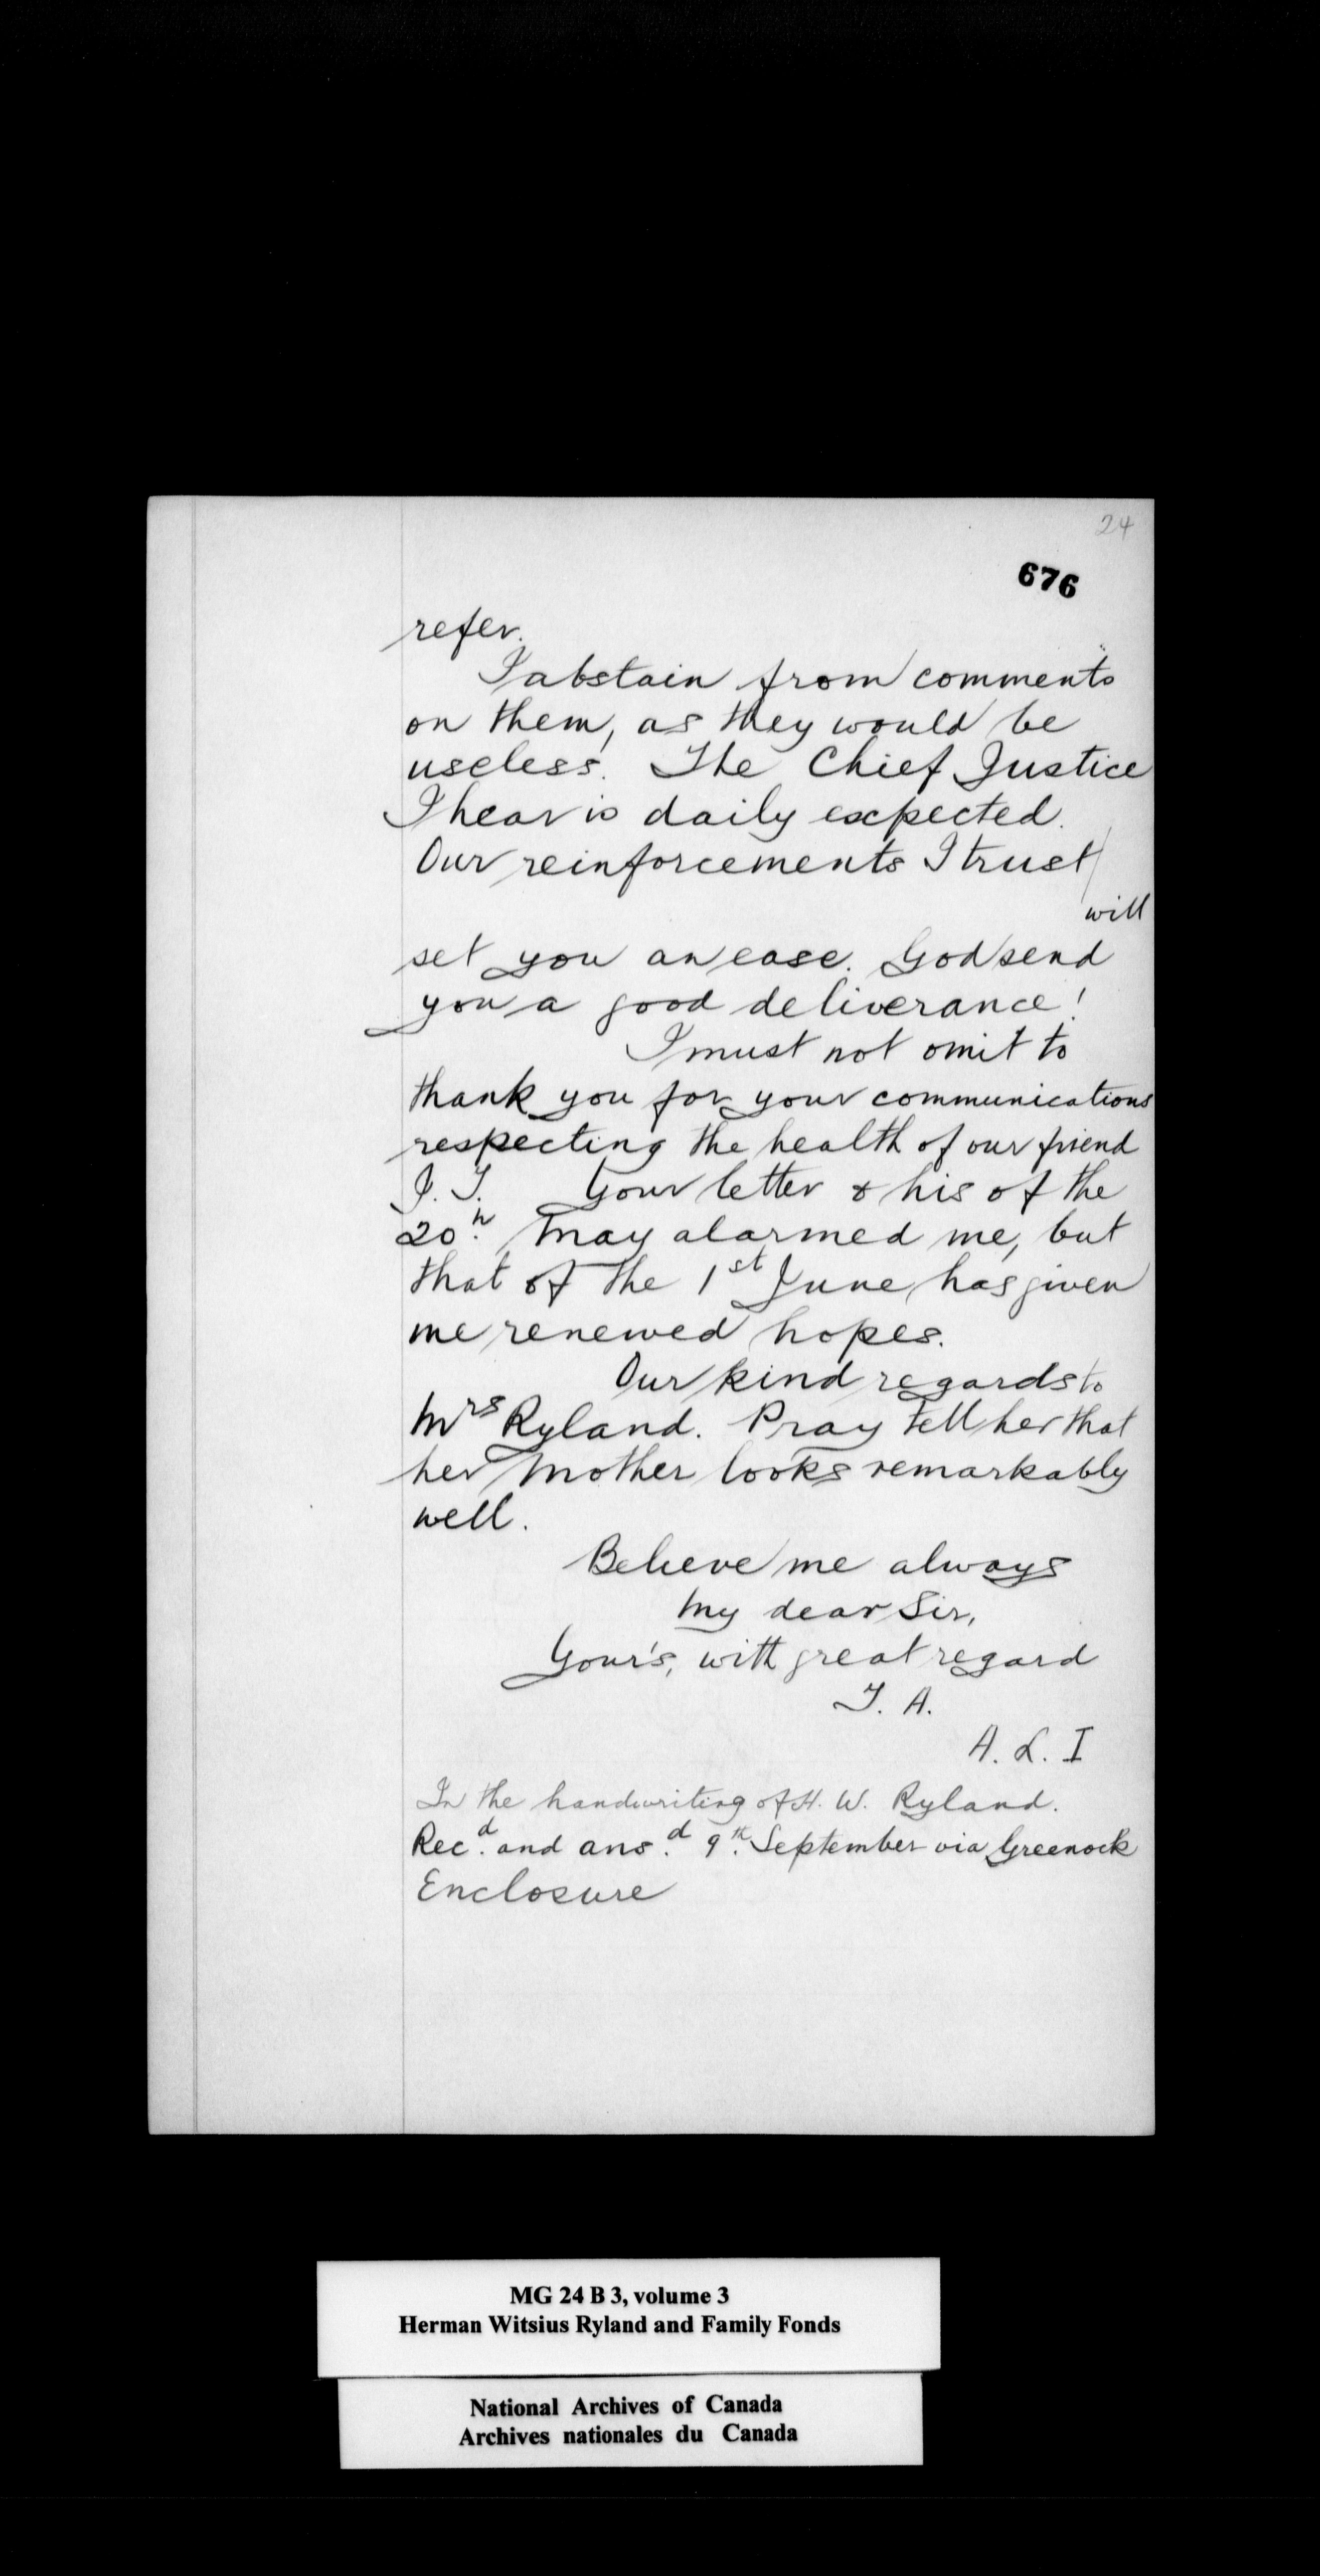 24
676
refer.
I abstain from comments
on them, as they would be
useless. The Chief Justice
I hear is daily expected.
Our reinforcements I trust
will
set you an ease. God send
you a good deliverance!
I must not omit to
thank you for your communications
respecting the health of our friend
J. T. Your letter & his of the
20.h May alarmed me, but
that of the 1st June, has given
me renewed hopes.
Our kind regards to
Mrs Ryland. Pray tell her that
her Mother looks remarkably
well.
Believe me always
My dear Sir,
Your's, with great regard
T. A.
A. L. I
In the handwriting of H. W. Ryland.
Rec.d and ans.d 9.th September via Greenock
Enclosure
MG 24 B 3, volume 3
Herman Witsius Ryland and Family Fonds
National Archives of Canada
Archives nationales du Canada